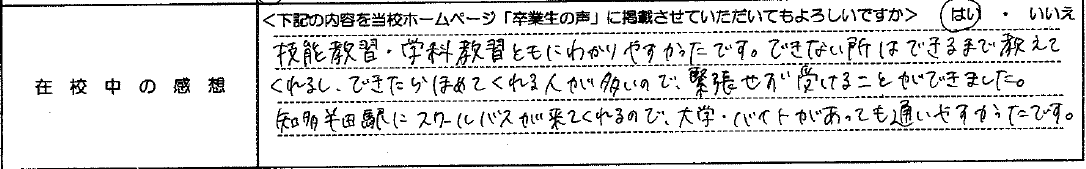 <下記の内容を当校ホームページ「卒業生の声」に掲載させていただいてもよろしいですか> はい ・ いいえ
在校中の感想
技能教習・学科教習ともにわかりやすかったです。できない所はできるまで教えて
くれるし、できたらほめてくれる人が多いので、緊張せず受けることができました。
知多半田駅にスクールバスが来てくれるので、大学・バイトがあっても通いやすかったです。